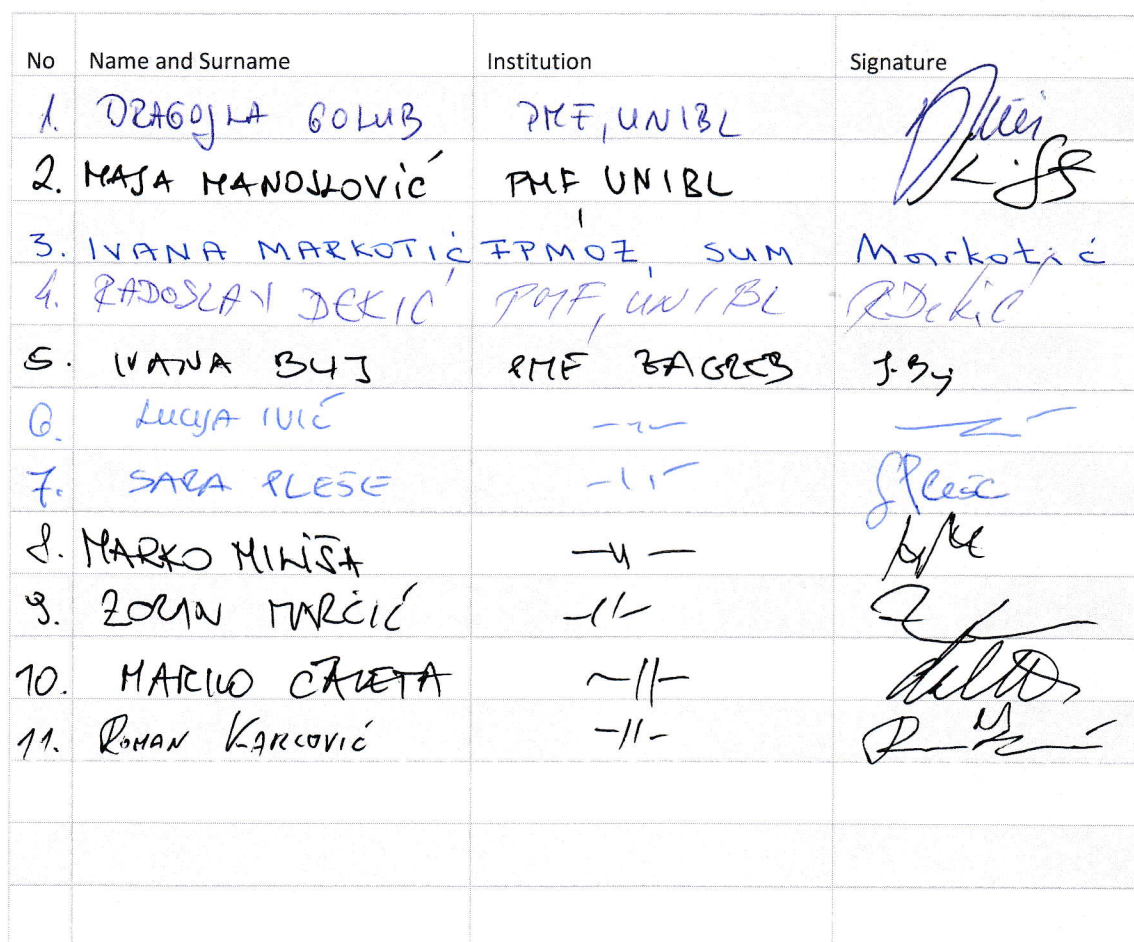 No Name and Surname Institution Signature
1. DRAGOJLA GOLUB PMF, UNIBL
2. MAJA MANOJLOVIĆ PMF, UNIBL
3. IVANA MARKOTIĆ FPMOZ, SUM Markotić
4. RADOSLAV DEKIĆ PMF, UNIBL RDekić
5. IVANA BUJ PMF ZAGREB I. Buj
6. LUCIJA IVIĆ -11-
7. SARA PLEŠE -11- SPleše
8. MARKO MILIŠA -11-
9. ZORAN MARČIĆ -11-
10. MARKO ĆALETA -11-
11. ROMAN KARLOVIĆ -11-